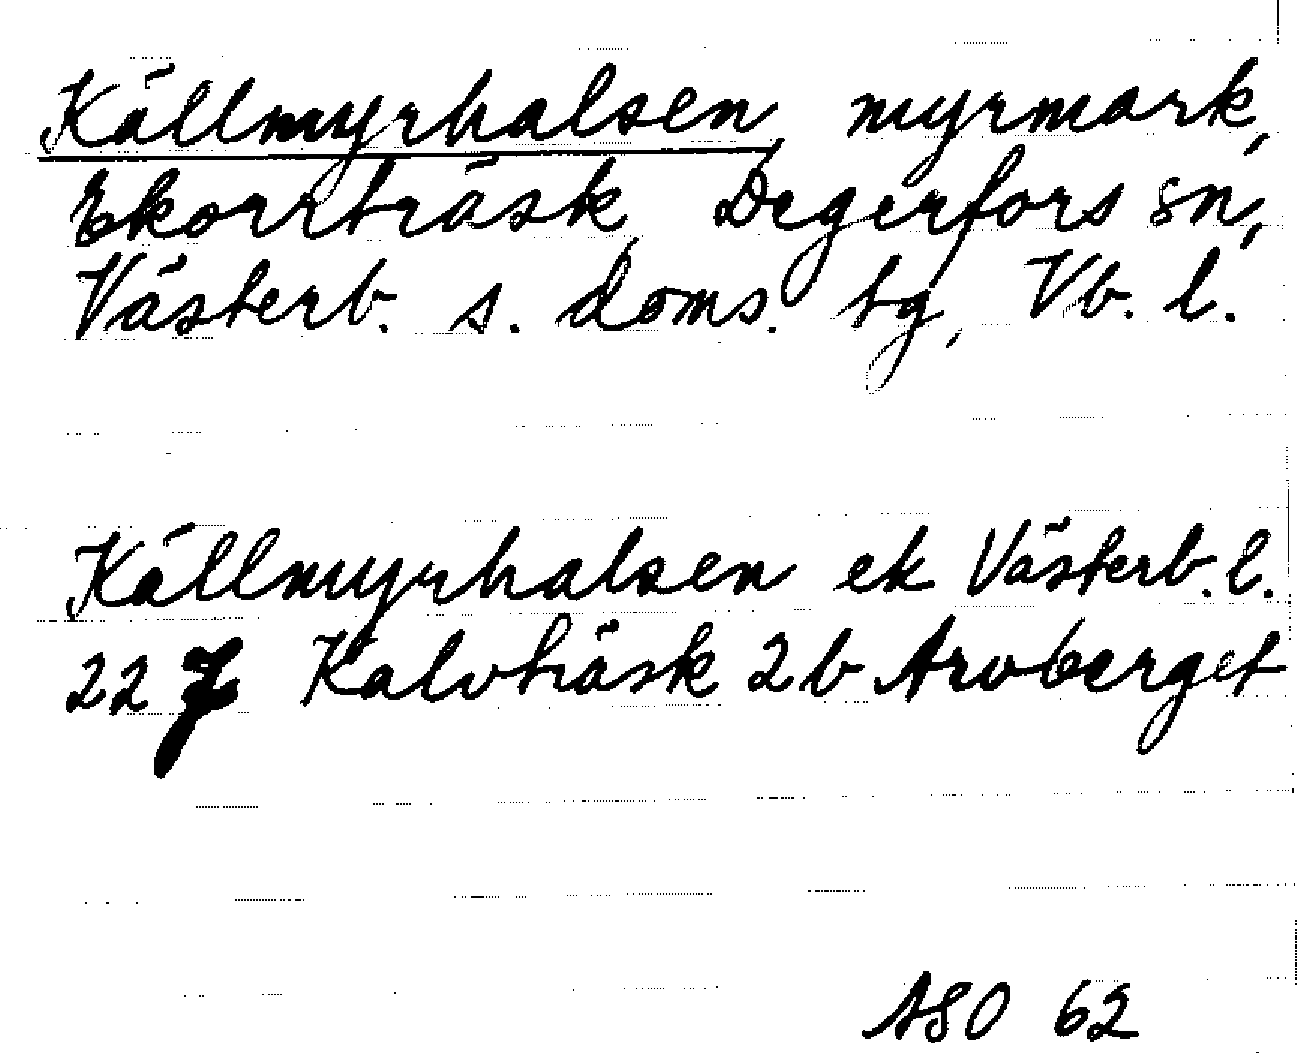 Källmyrhalsen, myrmark,
Ekorrträsk, Degerfors sn,
Västerb. s. doms. tg, Vb. l.
Källmyrhalsen ek Västerb. l.
22 J Kalvträsk 2b Arvberget
ASO 62